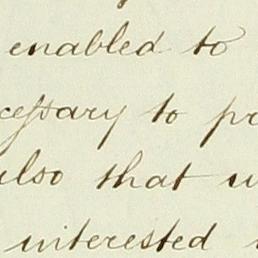 enabled to
ceſsary to p
also that
interested